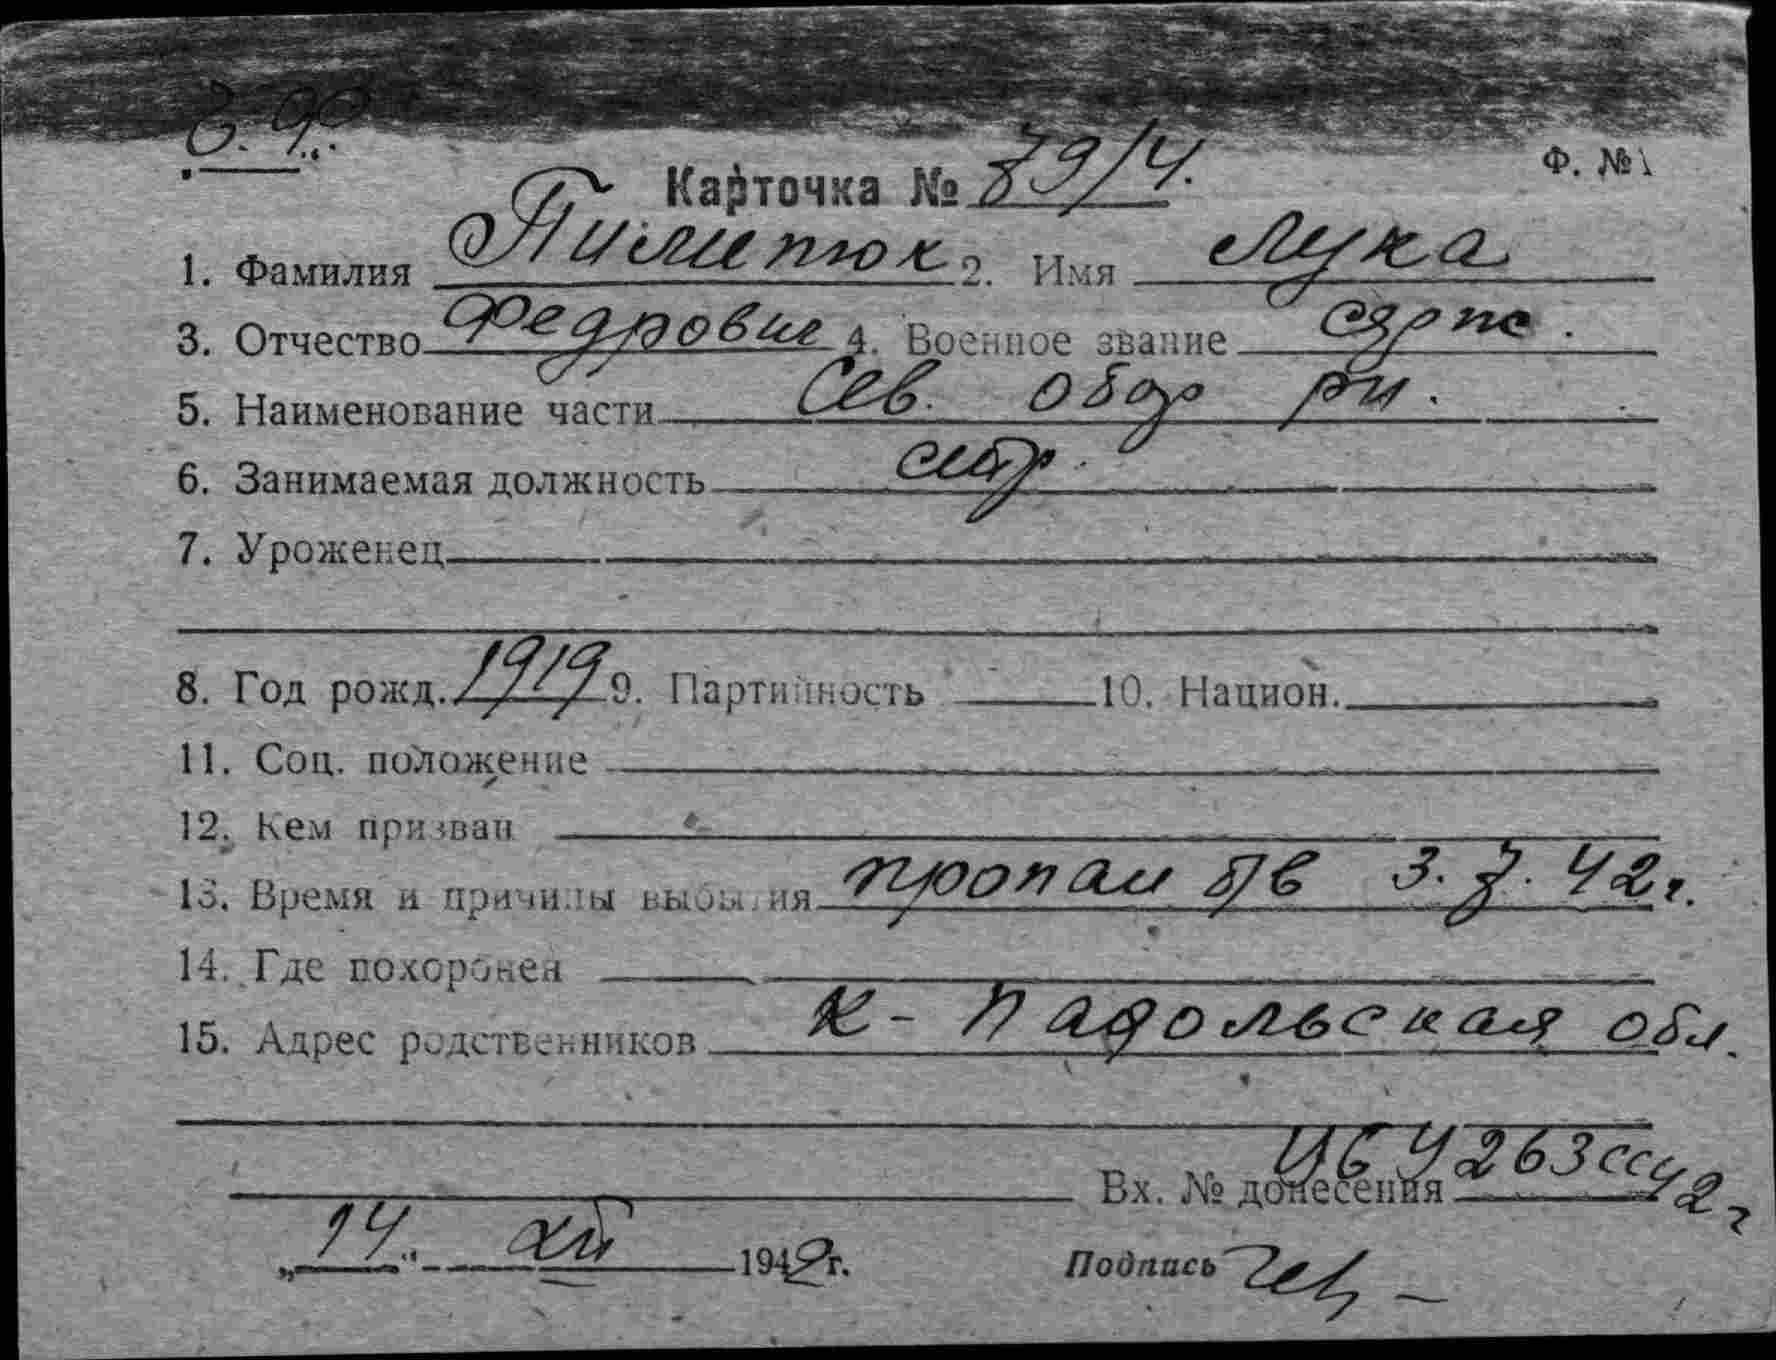 Ф. № 1
Карточка № 79/4.
1. Фамилия Пилипюк 2. Имя Лука
3. Отчество Федрович 4. Военное звание
5. Наименование части Сев. обор
6. Занимаемая должность
7. Уроженец
8. Год рожд. 1919 9. Партийность 10. Национ.
11. Соц. положение
12. Кем призван
13. Время и причины выбытия пропал б/в 3.7.42 г.
14. Где похоронен
15. Адрес родственников К-Падольская обл.
Вх. № донесения 4263сс 42 г
„14“ XII 1942 г. Подпись